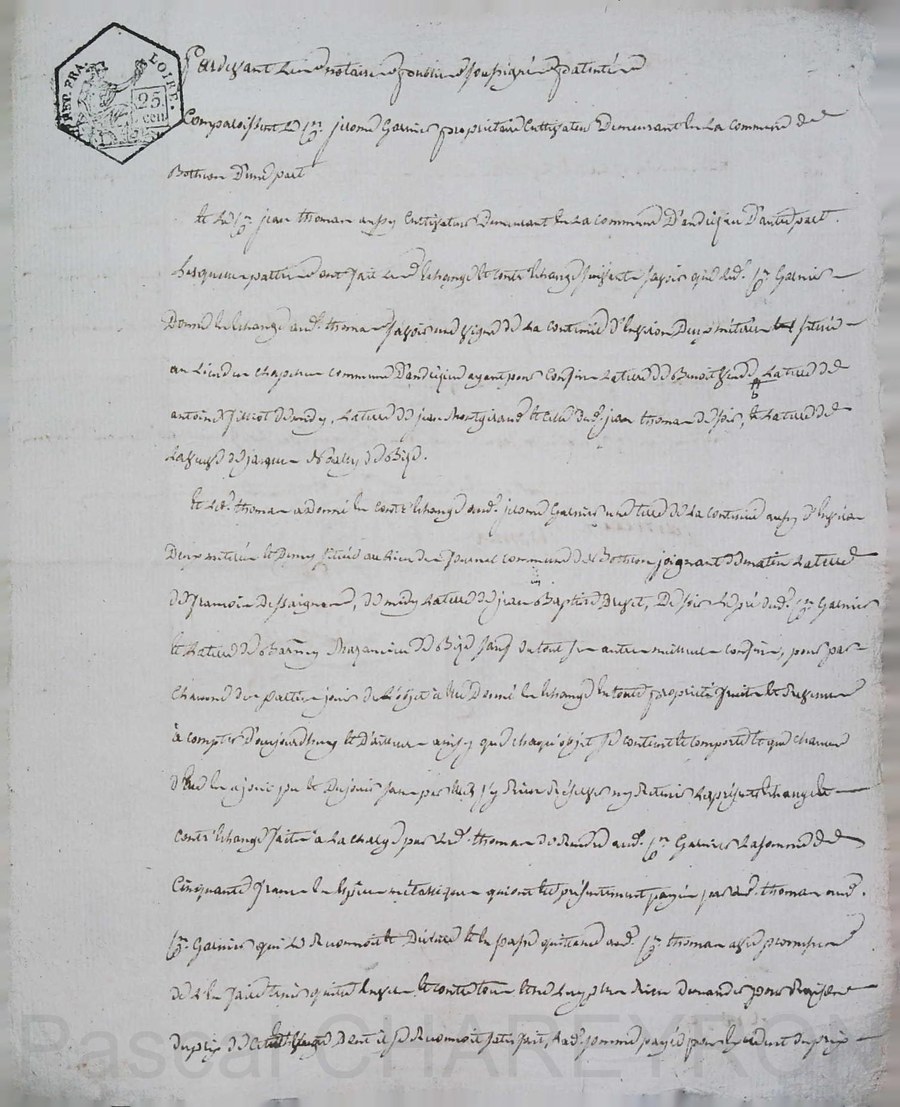 REP. FRA. LOIRE.
25. cen
Pardevant Le notaire public soussigné patenté
Comparoissent Le Cen. jerome Garnier proprietaire Cultivateur Demeurant En La Commune de
Botheon D'une part
Et Le Cen. jean thomas aussy Cultivateur Demeurant En La Commune D'andrezieu D'autre part.
Lesquelles parties ont fait Les Echange Et contr'Echange suivants savoir que led. Cen. Garnier
Donne En Echange aud. thomas savoir une vigne de La contenue d'Environ Deux métérées située
au Lieu du chapelier commune D'andrezieu ayant pour confins La terre de Benoit La terre de
antoine de midy, La terre de jean Montgiraud Et celle dud. jean thomas de soir, Et La terre de
La veuve de jacques de Bize.
Et Led. thomas a donné En Contr'Echange aud. jerome Garnier une terre de La contenue aussy d'Environ
Deux métérées Et Demy située au Lieu du journal commune de Botheon joignant de matin La terre
de francois Dessaignes, de midy La terre de jean Baptiste, De soir Le pré dud. Cen. Garnier
Et La terre de Barthelemy de Bize sauf du tout ses autres meilleurs confins, pour par
Chacune des parties jouir de L'objet à Elle Donné En Echange En toute propriété
à compter D'aujourdhuy Et D'ailleurs ainsy que chaqu'objet se contient Et comporte Et que chacun
d'Eux En a joui pu Et Du jouir sans par Eux s'y Rien Réserver ny Retenir La présente Echange Et
contr'Echange faite à La charge par Led. thomas de Rendre aud. Cen. Garnier La somme de
Cinquante francs En Espèces métalliques qui ont été présentement payés par Led. thomas aud.
Cen. Garnier qui Le Reconnoit Et Déclare Et En passe quittance aud. Cen. thomas avec promesse
de L'En faire tenir quitte Envers Et contre tous Et ne Luy plus Rien Demander pour Raison
du prix de cet Echange Dont il se Reconnoit satisfait, Lad. somme payée pour du prix
Pascal CHAREYRON